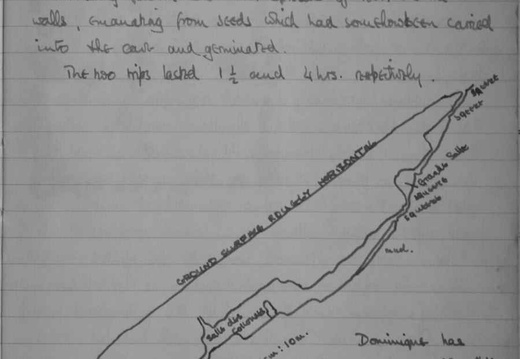 walls, emanating from seeds which had somehow been carried
into the cave and germinated.
The two trips lasted 1½ and 4 hrs. respectively.
squeeze
GROUND SURFACE ROUGHLY HORIZONTAL
Grande Salle
squeeze
mud.
Salle des
Colonnes
m: 10m.
Dominique has